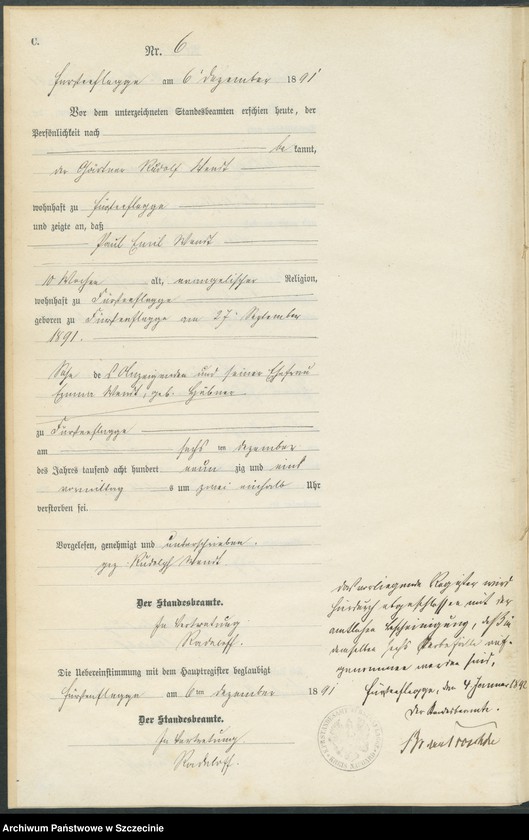 C.
Nr. 6
Fürstenflagge am 6ten Dezember 1891
Vor dem unterzeichneten Standesbeamten erschien heute, der
Persönlichkeit nach
be kannt,
der Gärtner Rudolf Wendt
wohnhaft zu Fürstenflagge
und zeigte an, daß
Paul Emil Wendt
10 Wochen alt, evangelischer Religion,
wohnhaft zu Fürstenflagge
geboren zu Fürstenflagge am 27ten September
1891.
Sohn des Anzeigenden und seiner Ehefrau
Emma Wendt, geb. Hübner
zu Fürstenflagge
am sechsten Dezember
des Jahres tausend acht hundert neun zig und eins
vormittags um zwei einhalb Uhr
verstorben sei.
Vorgelesen, genehmigt und unterschrieben.
gez. Rudolph Wendt
Der Standesbeamte.
In Vertretung
Radeloff.
Die Uebereinstimmung mit dem Hauptregister beglaubigt
Fürstenflagge am 6ten Dezember 1891
Der Standesbeamte.
In Vertretung.
Radeloff.
Das vorliegende Register wird
hierdurch abgeschlossen mit der
amtlichen Bescheinigung, daß in
demselben sechs Sterbefälle auf-
genommen worden sind.
Fürstenflagge, den 4 Januar 1892
Der Standesbeamte.
Archiwum Państwowe w Szczecinie